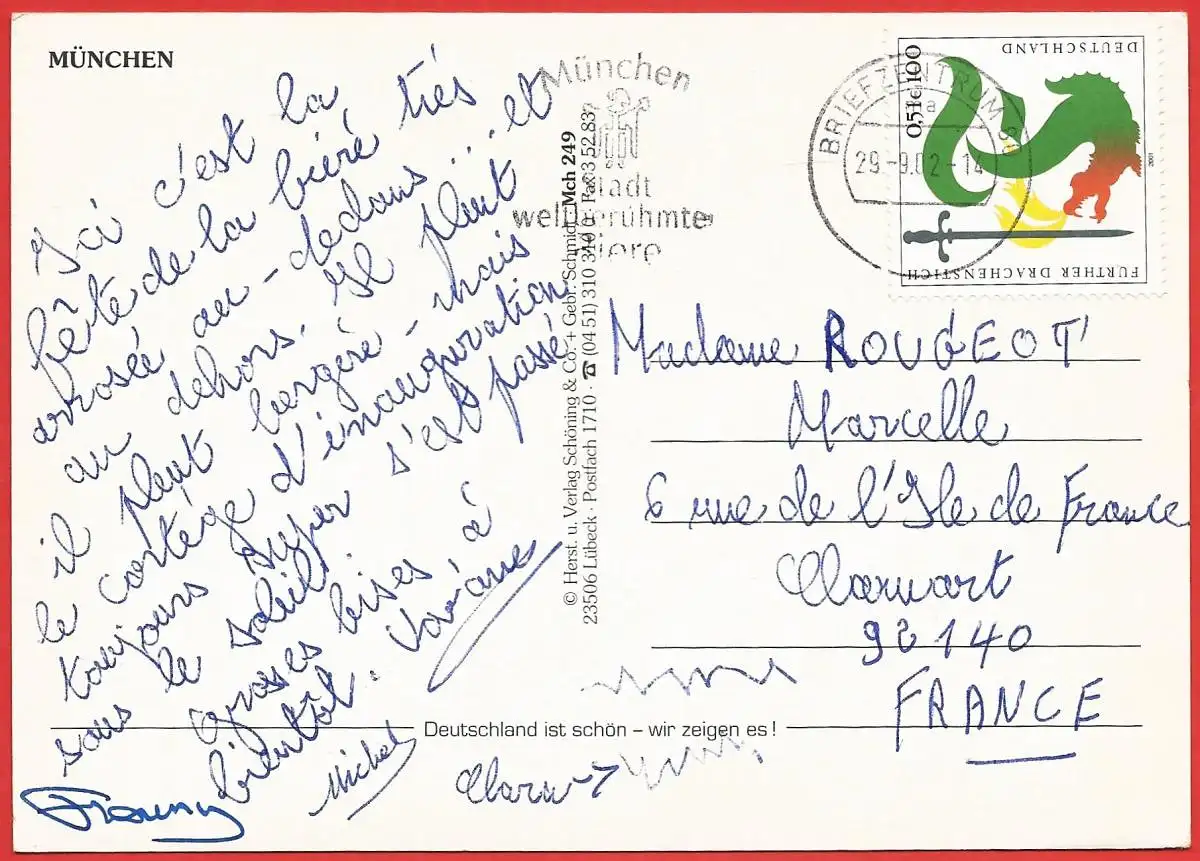 MÜNCHEN
Ici c'est la
fête de la bière très
arrosée au-dedans... et
au dehors. Il pleut
il pleut bergère - mais
le cortège d'inauguration
toujours super s'est passé
sous le soleil
Grosses bises, à
bientôt.
Michel
© Herst. u. Verlag Schöning & Co. + Gebr. Schmidt Mch 249
23506 Lübeck · Postfach 1710 · ☎ (0451) 310 310 · Fax 3 52 837
München
Stadt
weltberühmter
BRIEFZENTRUM
29.-9.02-14
DEUTSCHLAND
0,51€ 100
2001
FURTHER DRACHENSTICH
Madame ROUGEOT
Marcelle
6 rue de l'Ile de France
Clamart
92140
FRANCE
Deutschland ist schön – wir zeigen es!